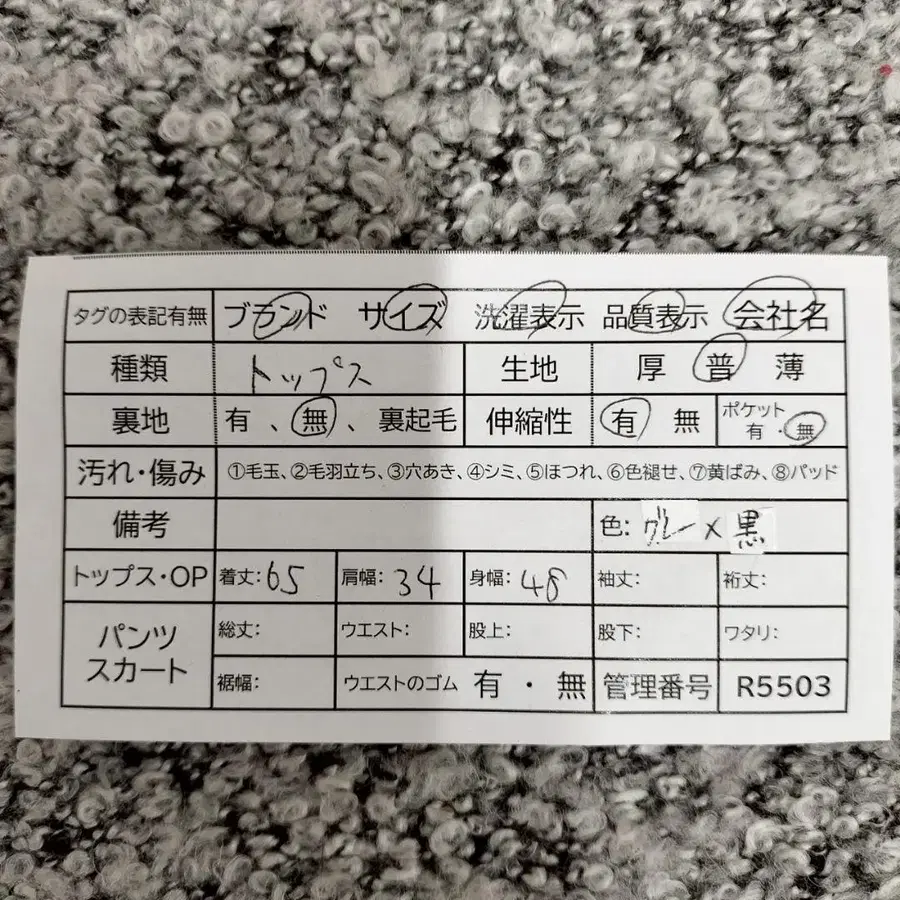 タグの表記有無 ブランド サイズ 洗濯表示 品質表示 会社名
種類 トップス 生地 厚 普 薄
裏地 有、無、裏起毛 伸縮性 有 無 ポケット 有・無
汚れ・傷み ①毛玉、②毛羽立ち、③穴あき、④シミ、⑤ほつれ、⑥色褪せ、⑦黄ばみ、⑧パッド
備考 色: グレー×黒
トップス・OP 着丈:65 肩幅:34 身幅:48 袖丈: 裄丈:
パンツ スカート 総丈: ウエスト: 股上: 股下: ワタリ:
裾幅: ウエストのゴム 有・無 管理番号 R5503